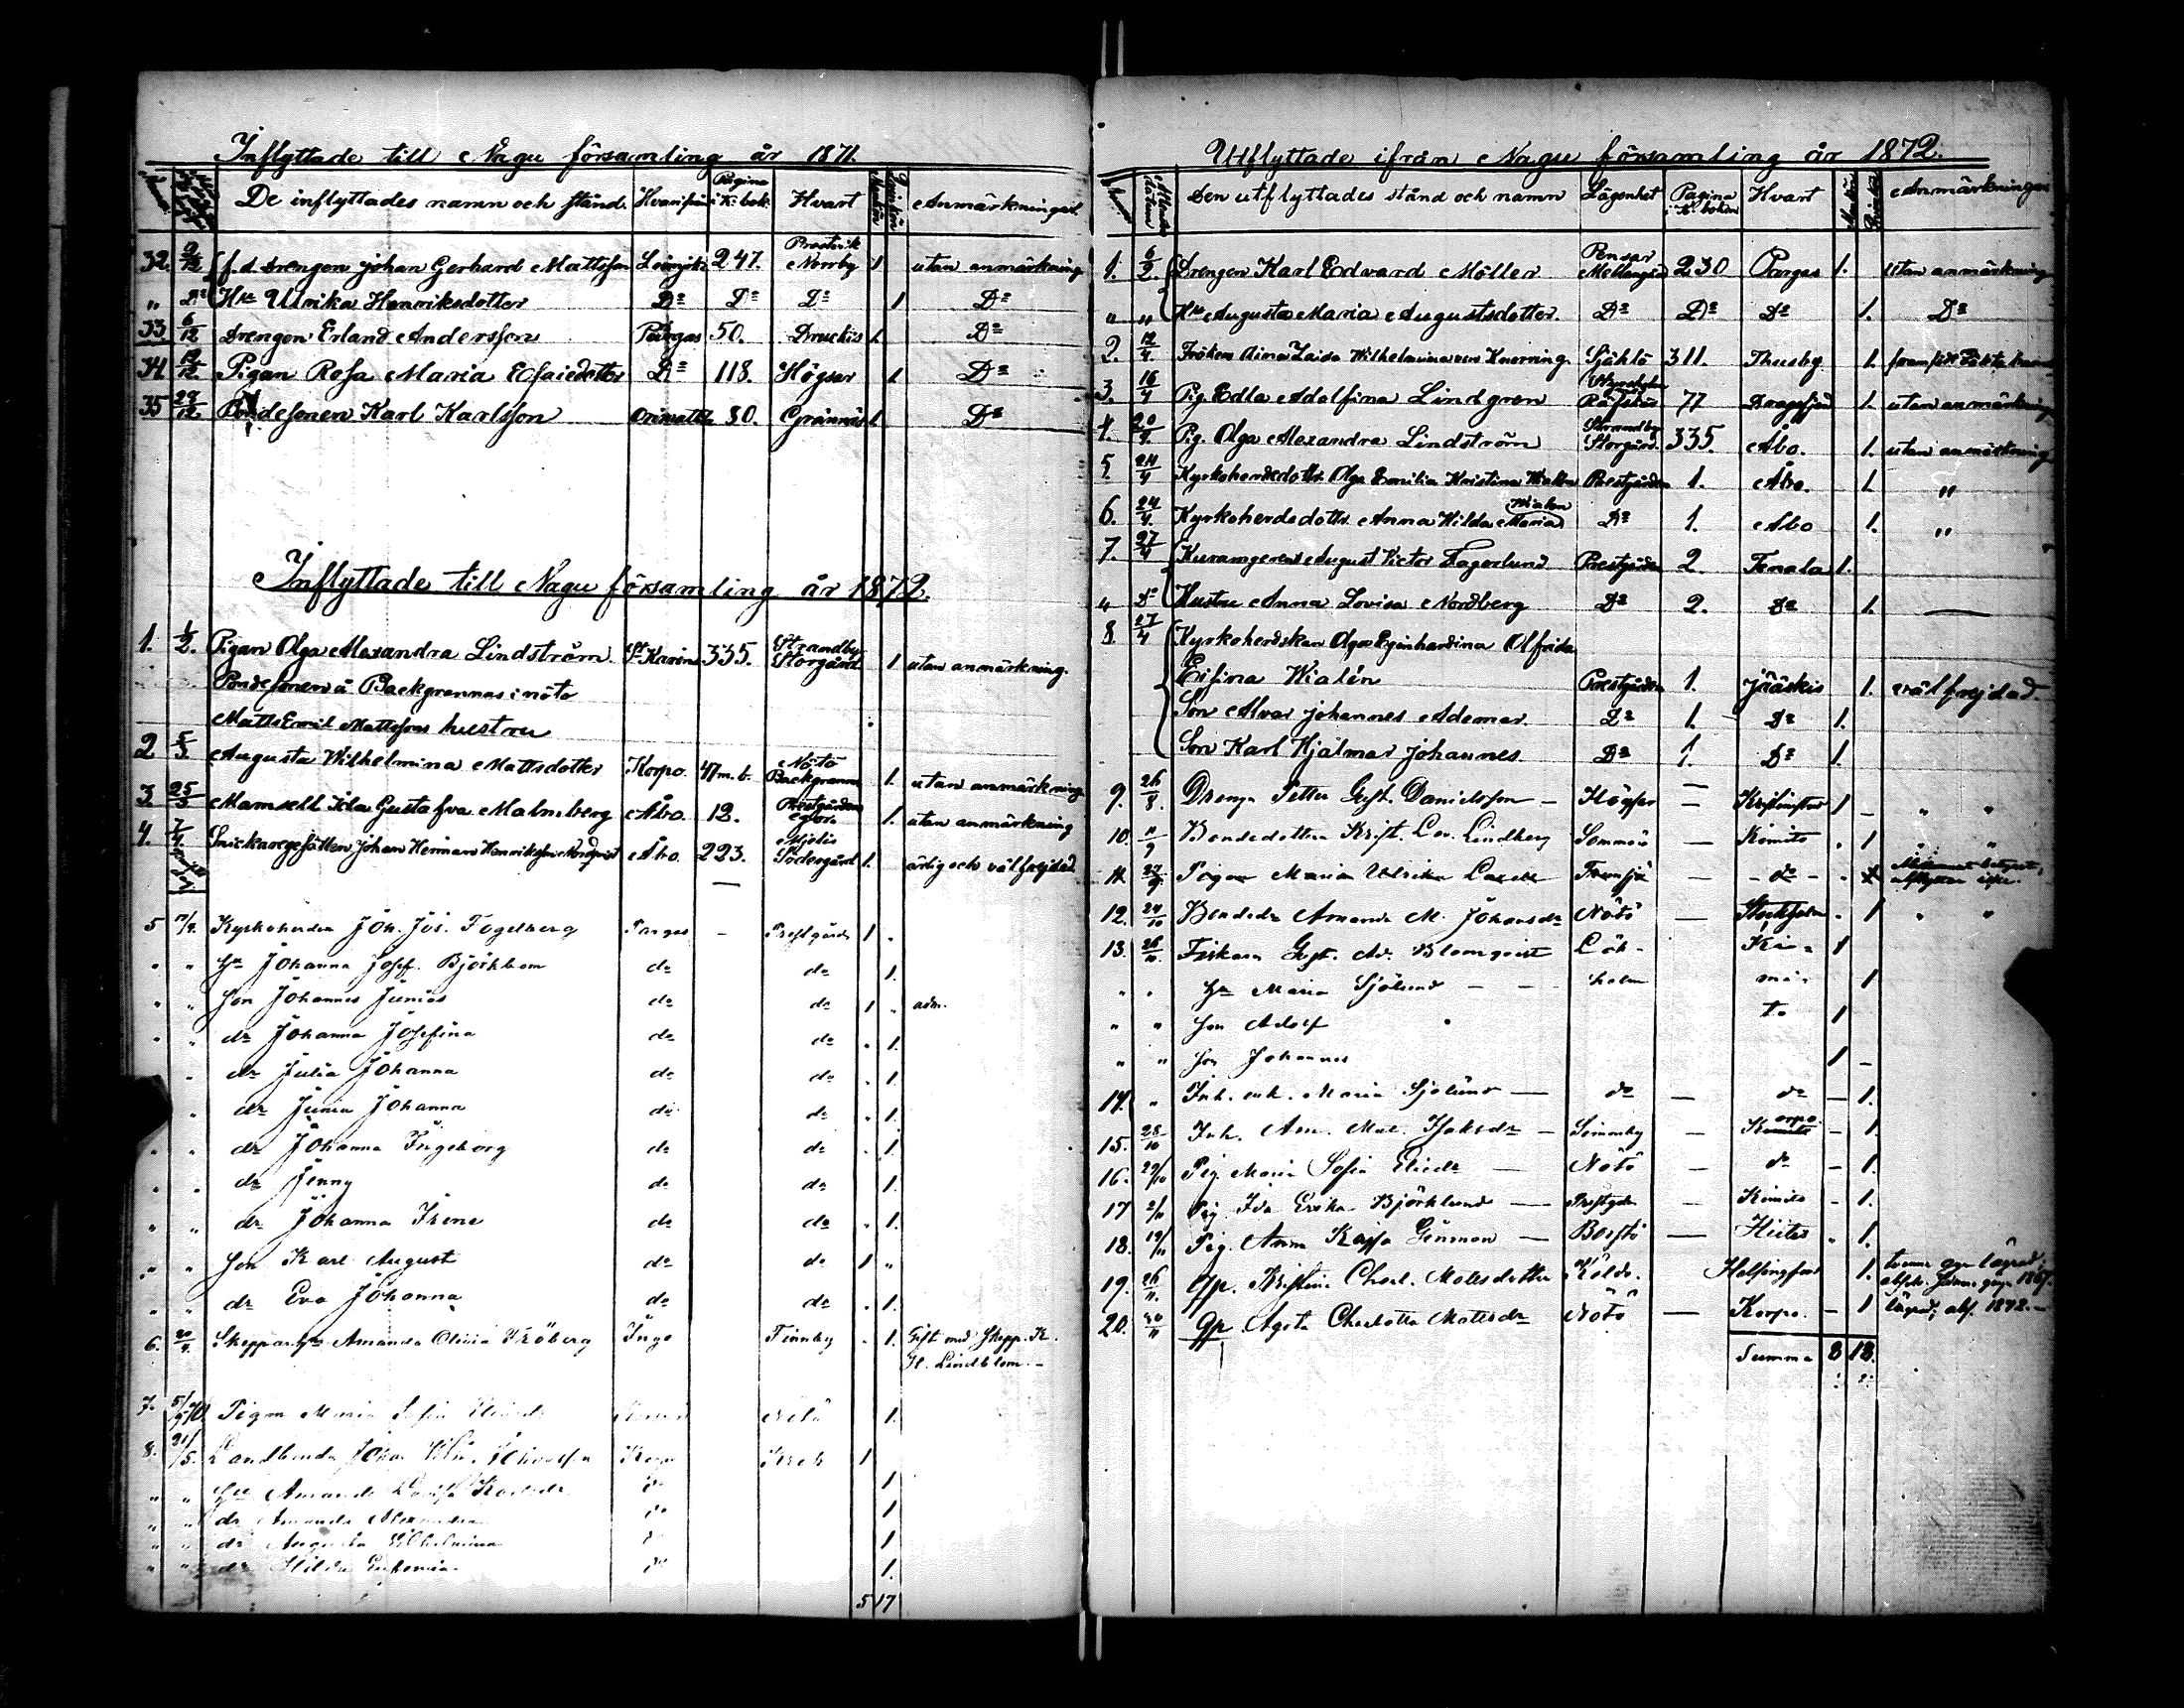 Inflyttade till Nagu församling år 1871.
De inflyttades namn och stånd. Hvarifrån Pagina i K: bok. Hvart Mankön Qvinkön Anmärkningar.
32. 2/12 f.d. drengen Johan Gerhard Mattsson 247. Norrby 1 utan anmärkning
" Do Hu Ulrika Henriksdotter Do Do Do 1 Do
33 6/12 Drengen Erland Andersson Pargas 50. 1. Do
34. 12/12. Pigan Rosa Maria Esaiedotter Do 118. Högsar 1 Do
35 28/12. Bondesonen Karl Karlsson 80. Grännäs 1 Do
Inflyttade till Nagu församling år 1872.
1. 1/2. Pigan Olga Alexandra Lindström. St Karins 335. Strandby Storgård 1 utan anmärkning.
Bondesonen å Backgrannas i nötö
Matts Emil Mattssons hustru
2 5/3. Augusta Wilhelmina Mattsdotter Korpo. 47 m.b. Nötö Backgranna 1. utan anmärkning
3. 25/3 Mamsell Ida Gustafva Malmberg Åbo. 12. Prestgården 1. utan anmärkning
4. 7/4. Snickaregesällen Johan Herman Henriksson Nordqvist Åbo. 223. Södergård 1. ärlig och välfrejdad
5 Kyrkoherden Joh. Jos. Fogelberg Pargas - Prestgård 1 .
" " Hu Johanna Josef. Björkbom do do 1.
" " Son Johannes Junius do do 1 " adm.
" " dr Johanna Josefina do do . 1.
" dr Julia Johanna do do . 1.
" dr Junia Johanna do do . 1.
" " dr Johanna Ingeborg do do . 1.
" " dr Jenny do do 1.
" " dr Johanna Irene do do . 1.
" " Son Karl August do do 1 "
" " dr Eva Johanna do do . 1.
6. Skeppar hu Amanda Olivia Fröberg Ingo Finnby . 1. Gift med Skepp. K.
G. Lindblom. -
7. Pigan Maria Sofia Nötö 1.
8. Landbonden Johan 1
" " Hu Amanda Lovisa 1
" " dr Amanda Alexandra 1
" " dr Augusta Wilhelmina 1
" " dr Hilda Eufemia 1.
5 17
Utflyttade ifrån Nagu församling år 1872.
Den utflyttades stånd och namn Lägenhet Pagina i K. boken Hvart Mankön Qvinkön Anmärkningar
1. 6/2. Drengen Karl Edvard Möller Pensar Mellangård 230 Pargas 1. utan anmärkning
" " Hu Augusta Maria Augustsdotter. Do Do Do 1. Do
2. 12/4. Fröken Aina Laisa Wilhelmina von Knorring. Själö 311. Thusby. 1.
3. 16/4 Pig. Edla Adolfina Lindgren 77 Dragsfjärd 1. utan anmärkning
4. 20/4. Pig. Olga Alexandra Lindström Strandby Storgård. 335. Åbo. 1. utan anmärkning
5. 24/4 Kyrkoherdedottr. Olga Emilia Kristina Wialén Prestgården 1. Åbo. 1. "
6. 24/4. Kyrkoherdedottr. Anna Hilda Maria Wialén Do 1. Åbo 1. "
7. 27/4 August Victor Fagerlund Prestgården 2. Tenala 1.
" Do Hustru Anna Lovisa Nordberg Do 2. Do 1. —
8. 27/4 Kyrkoherdskan Olga Eginhardina Alfrida
Eifina Wialén Prestgården 1. Jääskis 1. välfrejdad.
Son Alvar Johannes Ademar. Do 1. Do 1.
Son Karl Hjalmar Johannes Do 1. Do 1.
9. 26/8. Drengen Petter Gust. Danielsson - Högsar — Kristinestad 1 - " "
10. 11/9 Bondedottern Krist. Lov. Lindberg Sommarö — Kimito . 1 "
11. 27/9. Pigan Maria Ulrika — - do - utflyttar icke.
12. 24/10 Bondedr Amanda M. Johansdr Nötö — Stockholm . 1 " "
13. 26/10. Fiskaren Gust. Ad. Blomqvist Lök- Ki- 1
" " Hu Maria Sjölund - - holm mi- 1
" " Son Adolf to 1
" " Son Johannes 1 -
14. " Inh. enk. Maria Sjölund — do — do — 1.
15. 28/10 Inh. Ann. Mat. Isaksdr — Simonby — Korpo - 1.
16. 29/10 Pig. Maria Sofia Eliedr — Nötö — do - 1.
17 Pig. Ida Erika Björklund — Prestgdn - Kimito - 1.
18. 19/11 Pig. Anna Kajsa Genman — Borstö — Hitis . 1.
19. 26/11. Qp. Kristina Charl. Mattsdotter Köldö. Helsingfors 1.
20. 30/11 Qp Agata Charlotta Mattsdr Nötö — Korpo. - 1 lägrad, abs. 1872. -
Summa 8 18.